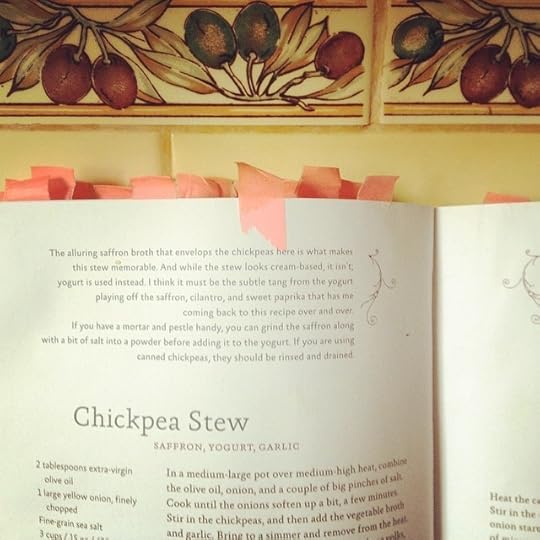 The alluring saffron broth that envelops the chickpeas here is what makes
this stew memorable. And while the stew looks cream-based, it isn't;
yogurt is used instead. I think it must be the subtle tang from the yogurt
playing off the saffron, cilantro, and sweet paprika that has me
coming back to this recipe over and over.
If you have a mortar and pestle handy, you can grind the saffron along
with a bit of salt into a powder before adding it to the yogurt. If you are using
canned chickpeas, they should be rinsed and drained.
Chickpea Stew
SAFFRON, YOGURT, GARLIC
2 tablespoons extra-virgin
olive oil
1 large yellow onion, finely
chopped
Fine-grain sea salt
3 cups / 15
In a medium-large pot over medium-high heat, combine
the olive oil, onion, and a couple of big pinches of salt.
Cook until the onions soften up a bit, a few minutes.
Stir in the chickpeas, and then add the vegetable broth
and garlic. Bring to a simmer and remove from the heat.
Heat the
Stir in the
onion